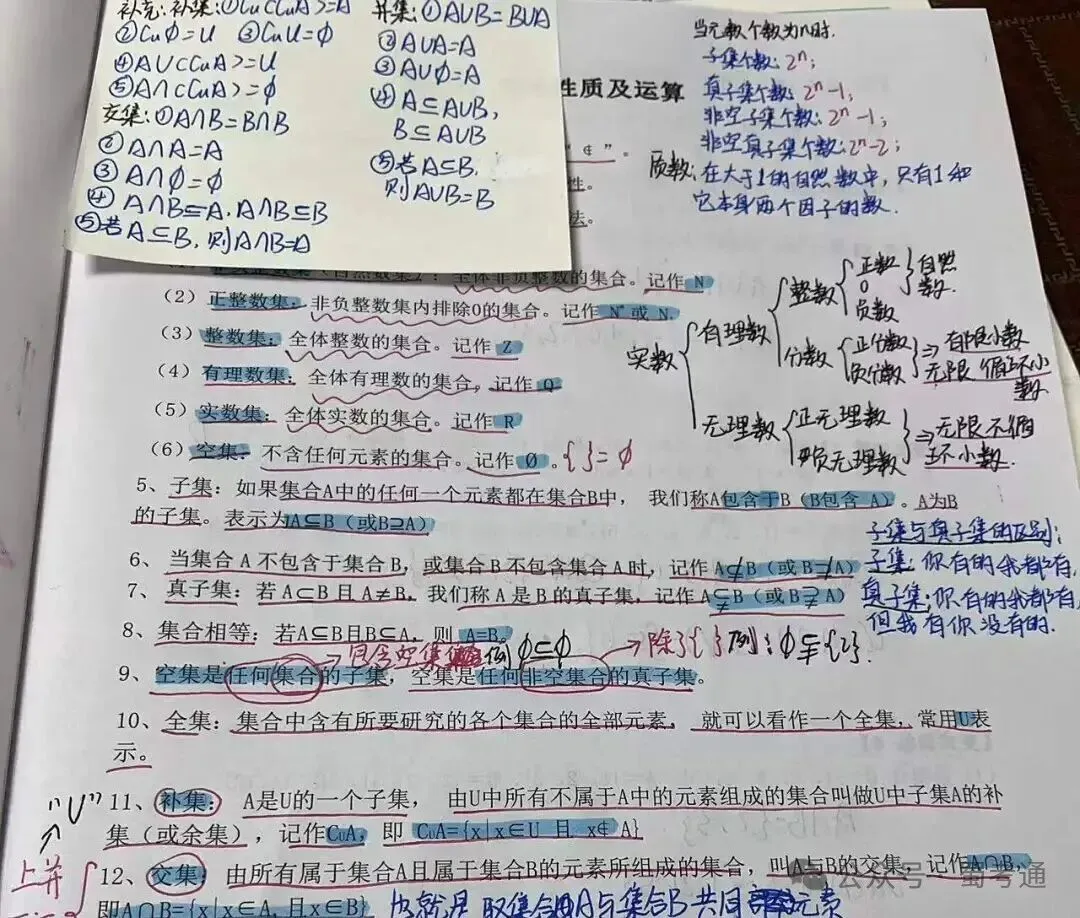 补充:补集:①Cu(CuA)=A
②Cuφ=U ③CuU=φ
④A∪(CuA)=U
⑤A∩(CuA)=φ
交集:①A∩B=B∩B
②A∩A=A
③A∩φ=φ
④A∩B⊆A,A∩B⊆B
⑤若A⊆B,则A∩B=A
并集:①A∪B=B∪A
②A∪A=A
③A∪φ=A
④A⊆A∪B,
B⊆A∪B
⑤若A⊆B,
则A∪B=B
当元数个数为n时.
子集个数:2ⁿ;
真子集个数:2ⁿ-1;
非空子集个数:2ⁿ-1;
非空真子集个数:2ⁿ-2;
质数:在大于1的自然数中,只有1和
它本身两个因子的数.
性质及运算
“∉”。
性。
法。
全体非负整数的集合。记作 N
(2)正整数集:非负整数集内排除0的集合。记作 N*或 N₊
(3)整数集:全体整数的集合。记作 Z
(4)有理数集:全体有理数的集合,记作 Q
(5)实数集:全体实数的集合。记作 R
(6)空集:不含任何元素的集合。记作 Ø。{ }=φ
实数
有理数
整数
正数
0
负数
自然
数.
分数
正分数
负分数
⇒有限小数
无限循环小
数
无理数
正无理数
负无理数
⇒无限不循
环小数.
5、子集:如果集合A中的任何一个元素都在集合B中, 我们称A包含于B(B包含 A)。A为B
的子集。表示为A⊆B(或B⊇A)
6、当集合 A 不包含于集合 B,或集合 B 不包含集合 A 时,记作 A⊈B(或 B⊉A)
7、真子集:若 A⊂B 且 A≠B,我们称 A 是 B 的真子集,记作 A⫋B(或 B⫌A)
子集与真子集的区别:
子集:你有的我都有,
真子集:你有的我都有,
但我有你没有的.
8、集合相等:若A⊆B且B⊆A,则 A=B。
→包含空集 例φ⊆φ
→除了{ }例:φ⫋{2}.
9、空集是任何集合的子集,空集是任何非空集合的真子集。
10、全集:集合中含有所要研究的各个集合的全部元素, 就可以看作一个全集,常用U表
示。
11、补集: A是U的一个子集, 由U中所有不属于A中的元素组成的集合叫做U中子集A的补
集(或余集),记作CᵤA,即 CᵤA={x|x∈U 且 x∉ A}
“U”
上并
12、交集:由所有属于集合A且属于集合B的元素所组成的集合,叫A与B的交集,记作A∩B,
即A∩B={x|x∈A,且x∈B} 也就是取集合A与集合B共同元素
公众号 蜀考通